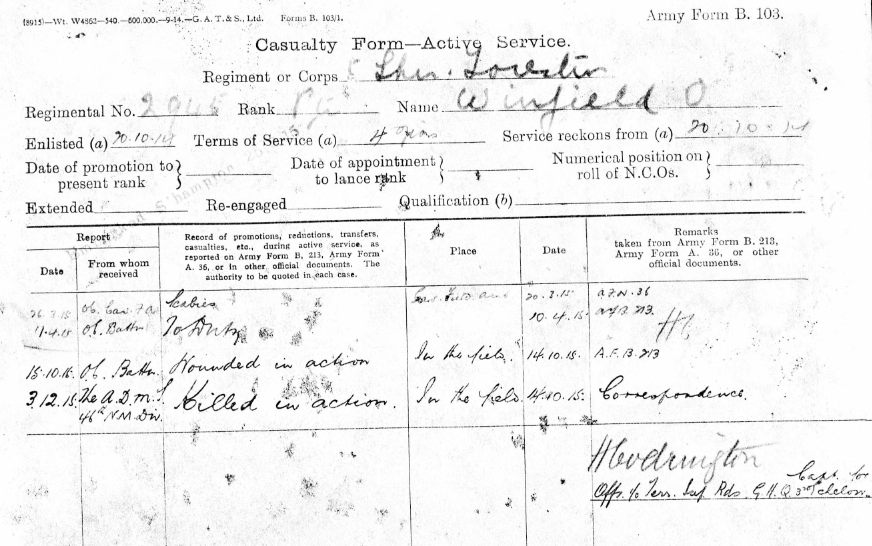 (8915)—Wt. W4862—540.—600,000.—9-14.—G. A. T. & S., Ltd. Forms B. 103/1.
Army Form B. 103.
Casualty Form—Active Service.
Regiment or Corps
Regimental No. Rank Name Winfield O.
Enlisted (a) 20.10.14 Terms of Service (a) 4 years Service reckons from (a) 20.10.14
Date of promotion to present rank
Date of appointment to lance rank
Numerical position on roll of N.C.Os.
Extended Re-engaged Qualification (b)
Report
Date
From whom received
Record of promotions, reductions, transfers, casualties, etc., during active service, as reported on Army Form B. 213, Army Form A. 36, or in other official documents. The authority to be quoted in each case.
Place
Date
Remarks taken from Army Form B. 213, Army Form A. 36, or other official documents.
26.3.15 Scabies 20.3.15
11.4.15 O.C. Battn To Duty 10.4.15 A.F.B. 213
15.10.15 O.C. Battn. Wounded in action In the field. 14.10.15. A.F.B. 213
3.12.15 The A.D.M.S. 46th N.M. Div. Killed in action. In the field. 14.10.15. Correspondence.
H Codrington
Capt. for
Offr. i/c Terr. Inf. Rds. G.H.Q 3rd Echelon.